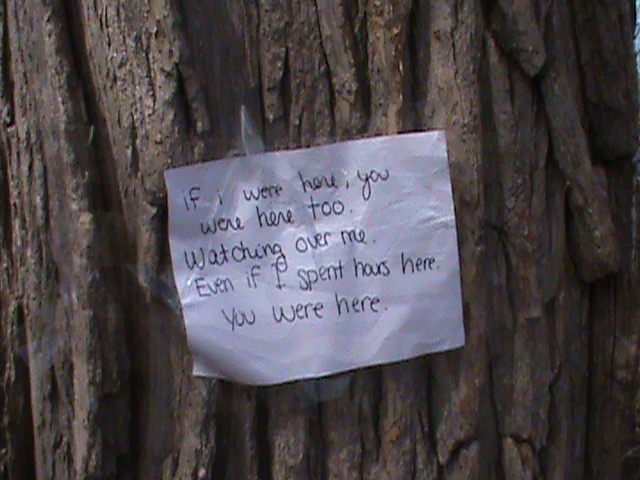 if i were here, you
were here too.
Watching over me.
Even if I spent hours here.
You were here.